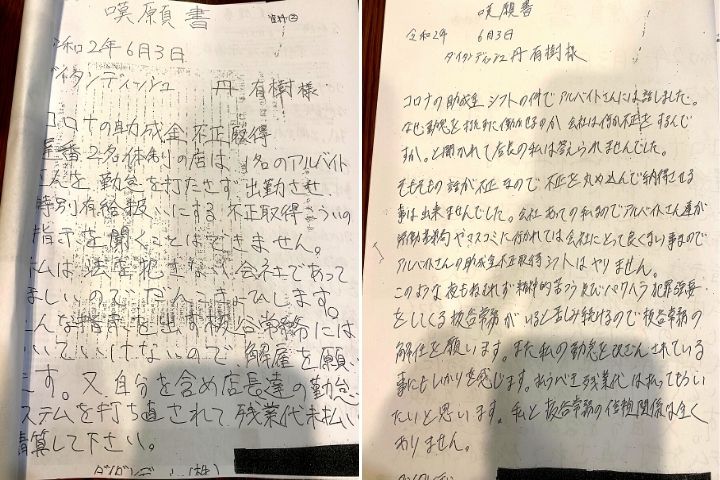 嘆願書
資料②
令和2年 6月3日
ダイタンディッシュ 丹 有樹様
コロナの助成金不正取得
昼番2名体制の店は1名のアルバイト
さんを勤怠を打たさず出勤させ
特別有給扱いにする不正取得こういの
指示を聞くことはできません。
私は法を犯さない会社であって
ほしいのでだんこきょひします。
こんな指示を出す板谷常務には
ついていけないので、解雇を願い
ます。又、自分を含め店長達の勤怠
システムを打ち直されて残業代未払い
清算して下さい。
嘆願書
令和2年 6月3日
ダイタンディッシュ 丹 有樹様
コロナの助成金 シフトの件でアルバイトさんには話しました。
なぜ、勤怠を押さずに働かせるのか 会社は何か不正をするんで
すか。と聞かれて店長の私は答えられませんでした。
そもそもの話が不正なので 不正を丸め込んで納得させる
事は出来ませんでした。会社あっての私なのでアルバイトさん達が
労働基準局やマスコミに行かれては会社にとって良くない事なので
アルバイトさんの助成金不正取得シフトはやりません。
このような夜もねむれず精神的苦つう及びパワハラ 犯罪強要
をしてくる板谷常務がいると苦しみ続けるので板谷常務の
解任を願います。また私の勤怠を改ざんされている
事にもいかりを感じます。払うべき残業代は払ってもらい
たいと思います。私と板谷常務の信頼関係は全く
ありません。